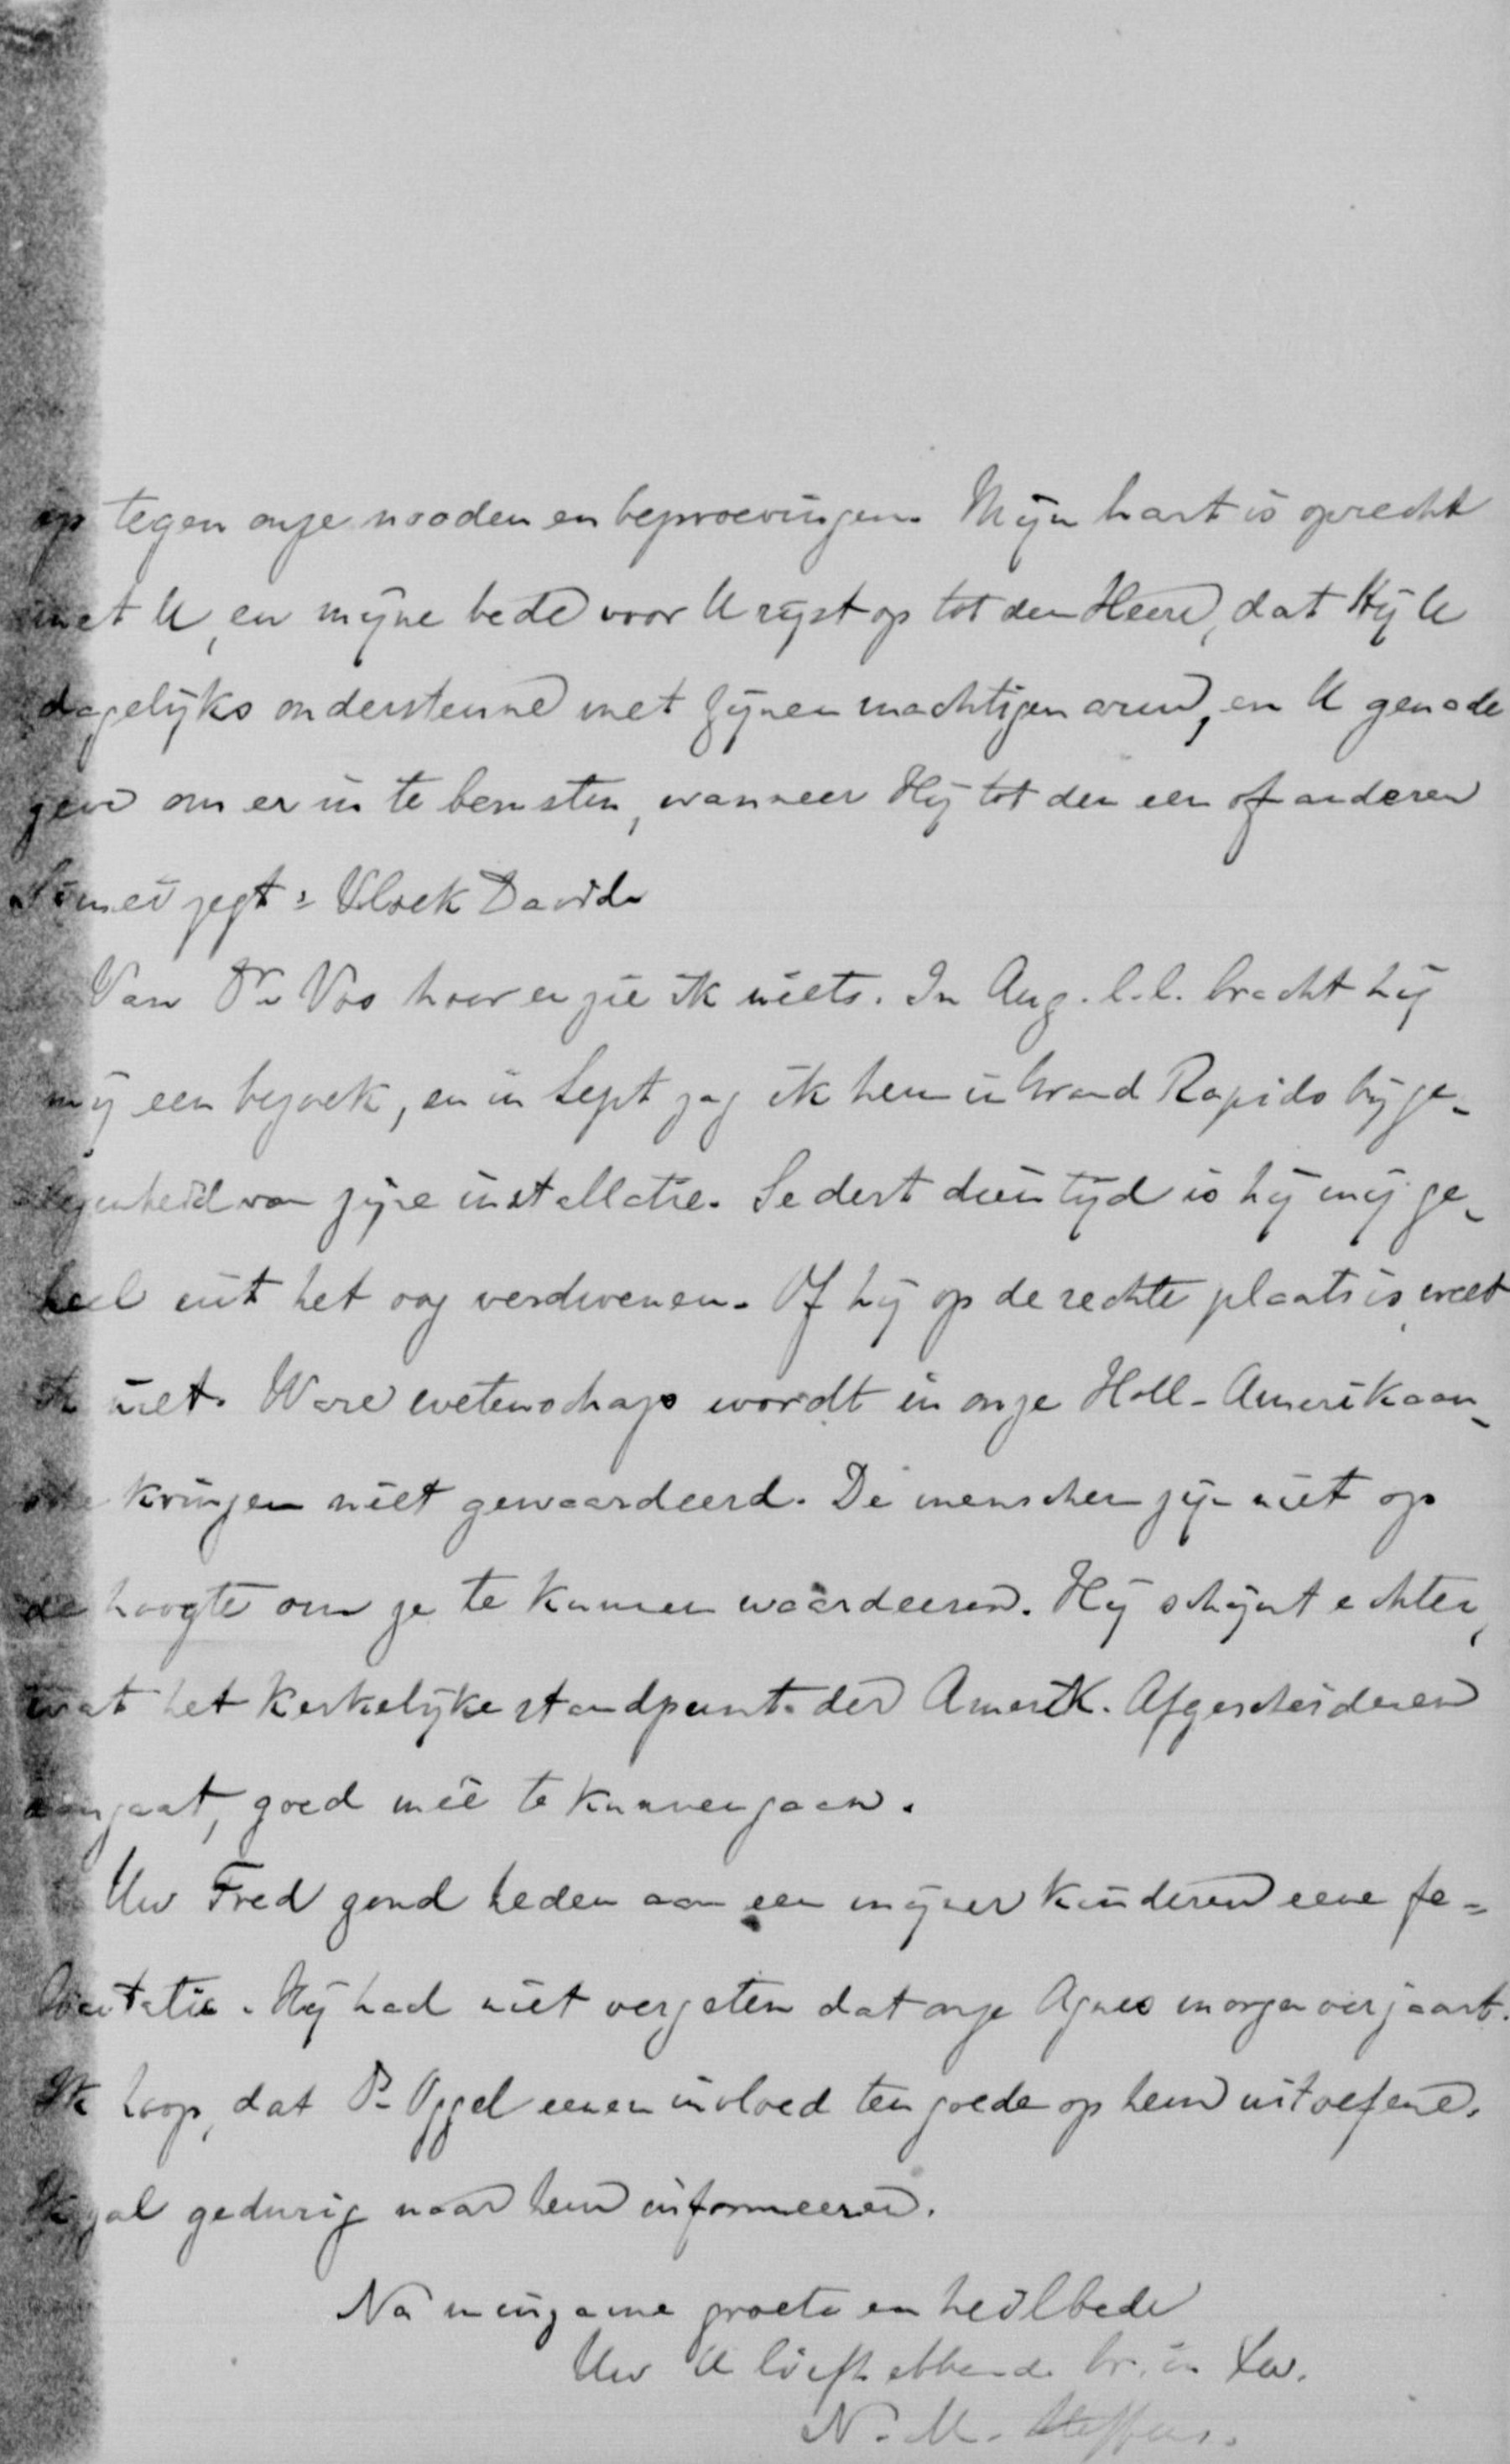 op tegen onze nooden en beproevingen. Mijn hart is oprecht
met U, en mijne bede voor U rijst op tot den Heere, dat Hij U
dagelijks ondersteune met Zijnen machtigen arm, en U genade
geve om er in te berusten, wanneer Hij tot den een of anderen
Simei zegt: Vloek David.
Van Dr. Vos hoor en zie ik niets. In Aug. l.l. bracht hij
mij een bezoek, en in Sept zag ik hem in Grand Rapids bij ge-
legenheid van zijne installatie. Sedert dien tijd is hij mij ge-
heel uit het oog verdwenen. Of hij op de rechte plaats is, weet
ik niet. Ware wetenschap wordt in onze Holl-Amerikaan-
sche kringen niet gewaardeerd. De menschen zijn niet op
de hoogte om ze te kunnen waardeeren. Hij schijnt echter,
wat het kerkelijke standpunt der Amerik. Afgescheidenen
aangaat, goed meê te kunnen gaan.
Uw Fred zond heden aan een mijner kinderen eene fe-
licitatie. Hij had niet vergeten dat onze Agnes morgen verjaart.
Ik hoop, dat P. Oggel eenen invloed ten goede op hem uitoefene.
Ik zal gedurig naar hem informeeren.
Na minzame groete en heilbede
Uw U liefhebbende br. in Xo.
N. M. Steffens.